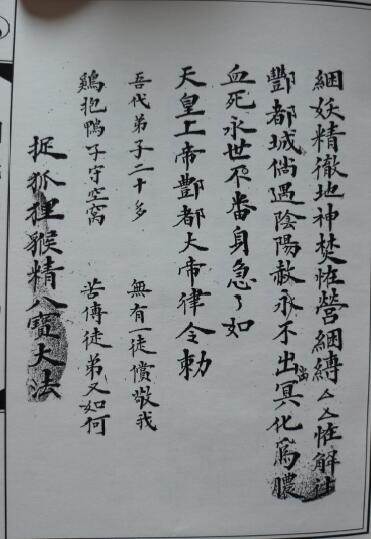 綑妖精徹地神焚恠營綑縛厶厶恠解往
酆都城倘遇陰陽赦永不出當冥化爲膿
血死永世不番身急々如
天皇上帝酆都大帝律令勅
吾代弟子二十多 無有一徒償敬我
鷄抱鴨子守空窩 苦傳徒弟又如何
捉狐狸猴精八寶大法